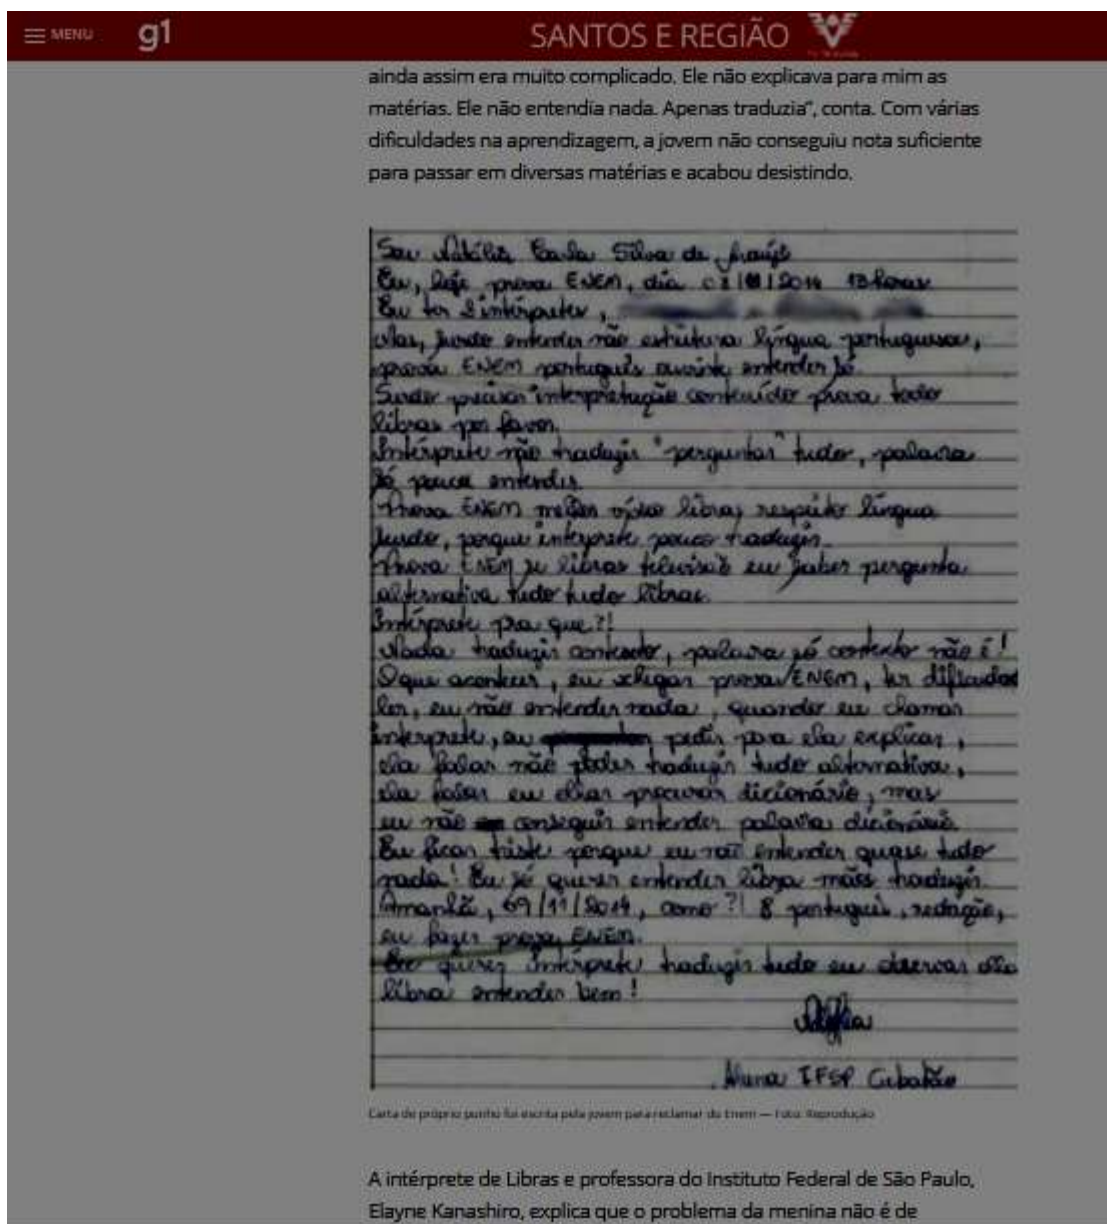 MENU g1 SANTOS E REGIÃO
ainda assim era muito complicado. Ele não explicava para mim as
matérias. Ele não entendia nada. Apenas traduzia”, conta. Com várias
dificuldades na aprendizagem, a jovem não conseguiu nota suficiente
para passar em diversas matérias e acabou desistindo.
Sou Natália Carla Silva de Araújo
Eu, hoje prova ENEM, dia 08/11/2014 13 horas
Eu ter 2 intérpretes,
Mas, surdo entender não estrutura língua portuguesa,
prova ENEM português ouvinte entender só.
Surdo precisar interpretação conteúdo prova todo
libras por favor.
Intérprete não traduzir "perguntas" tudo, palavra
só pouca entender.
Prova ENEM melhor vídeo libras respeito língua
surdo, porque intérprete pouco traduzir.
Prova ENEM se libras televisão eu saber pergunta
alternativa tudo tudo libras.
Intérprete pra que?!
Nada traduzir contexto, palavra só contexto não é!
O que acontecer, eu chegar prova ENEM, ter dificuldade
ler, eu não entender nada, quando eu chamar
intérprete, eu pedir para ela explicar,
ela falar não poder traduzir tudo alternativa,
ela falar eu olhar procurar dicionário, mas
eu não conseguir entender palavra dicionário.
Eu ficar triste porque eu não entender quase tudo
nada! Eu só querer entender libra mãos traduzir.
Amanhã, 09/11/2014, como?! português, redação,
eu fazer prova ENEM.
Eu querer intérprete traduzir tudo eu observar ela
libra entender bem!
Aluna IFSP Cubatão
Carta de próprio punho foi escrita pela jovem para reclamar do Enem — Foto: Reprodução
A intérprete de Libras e professora do Instituto Federal de São Paulo,
Elayne Kanashiro, explica que o problema da menina não é de